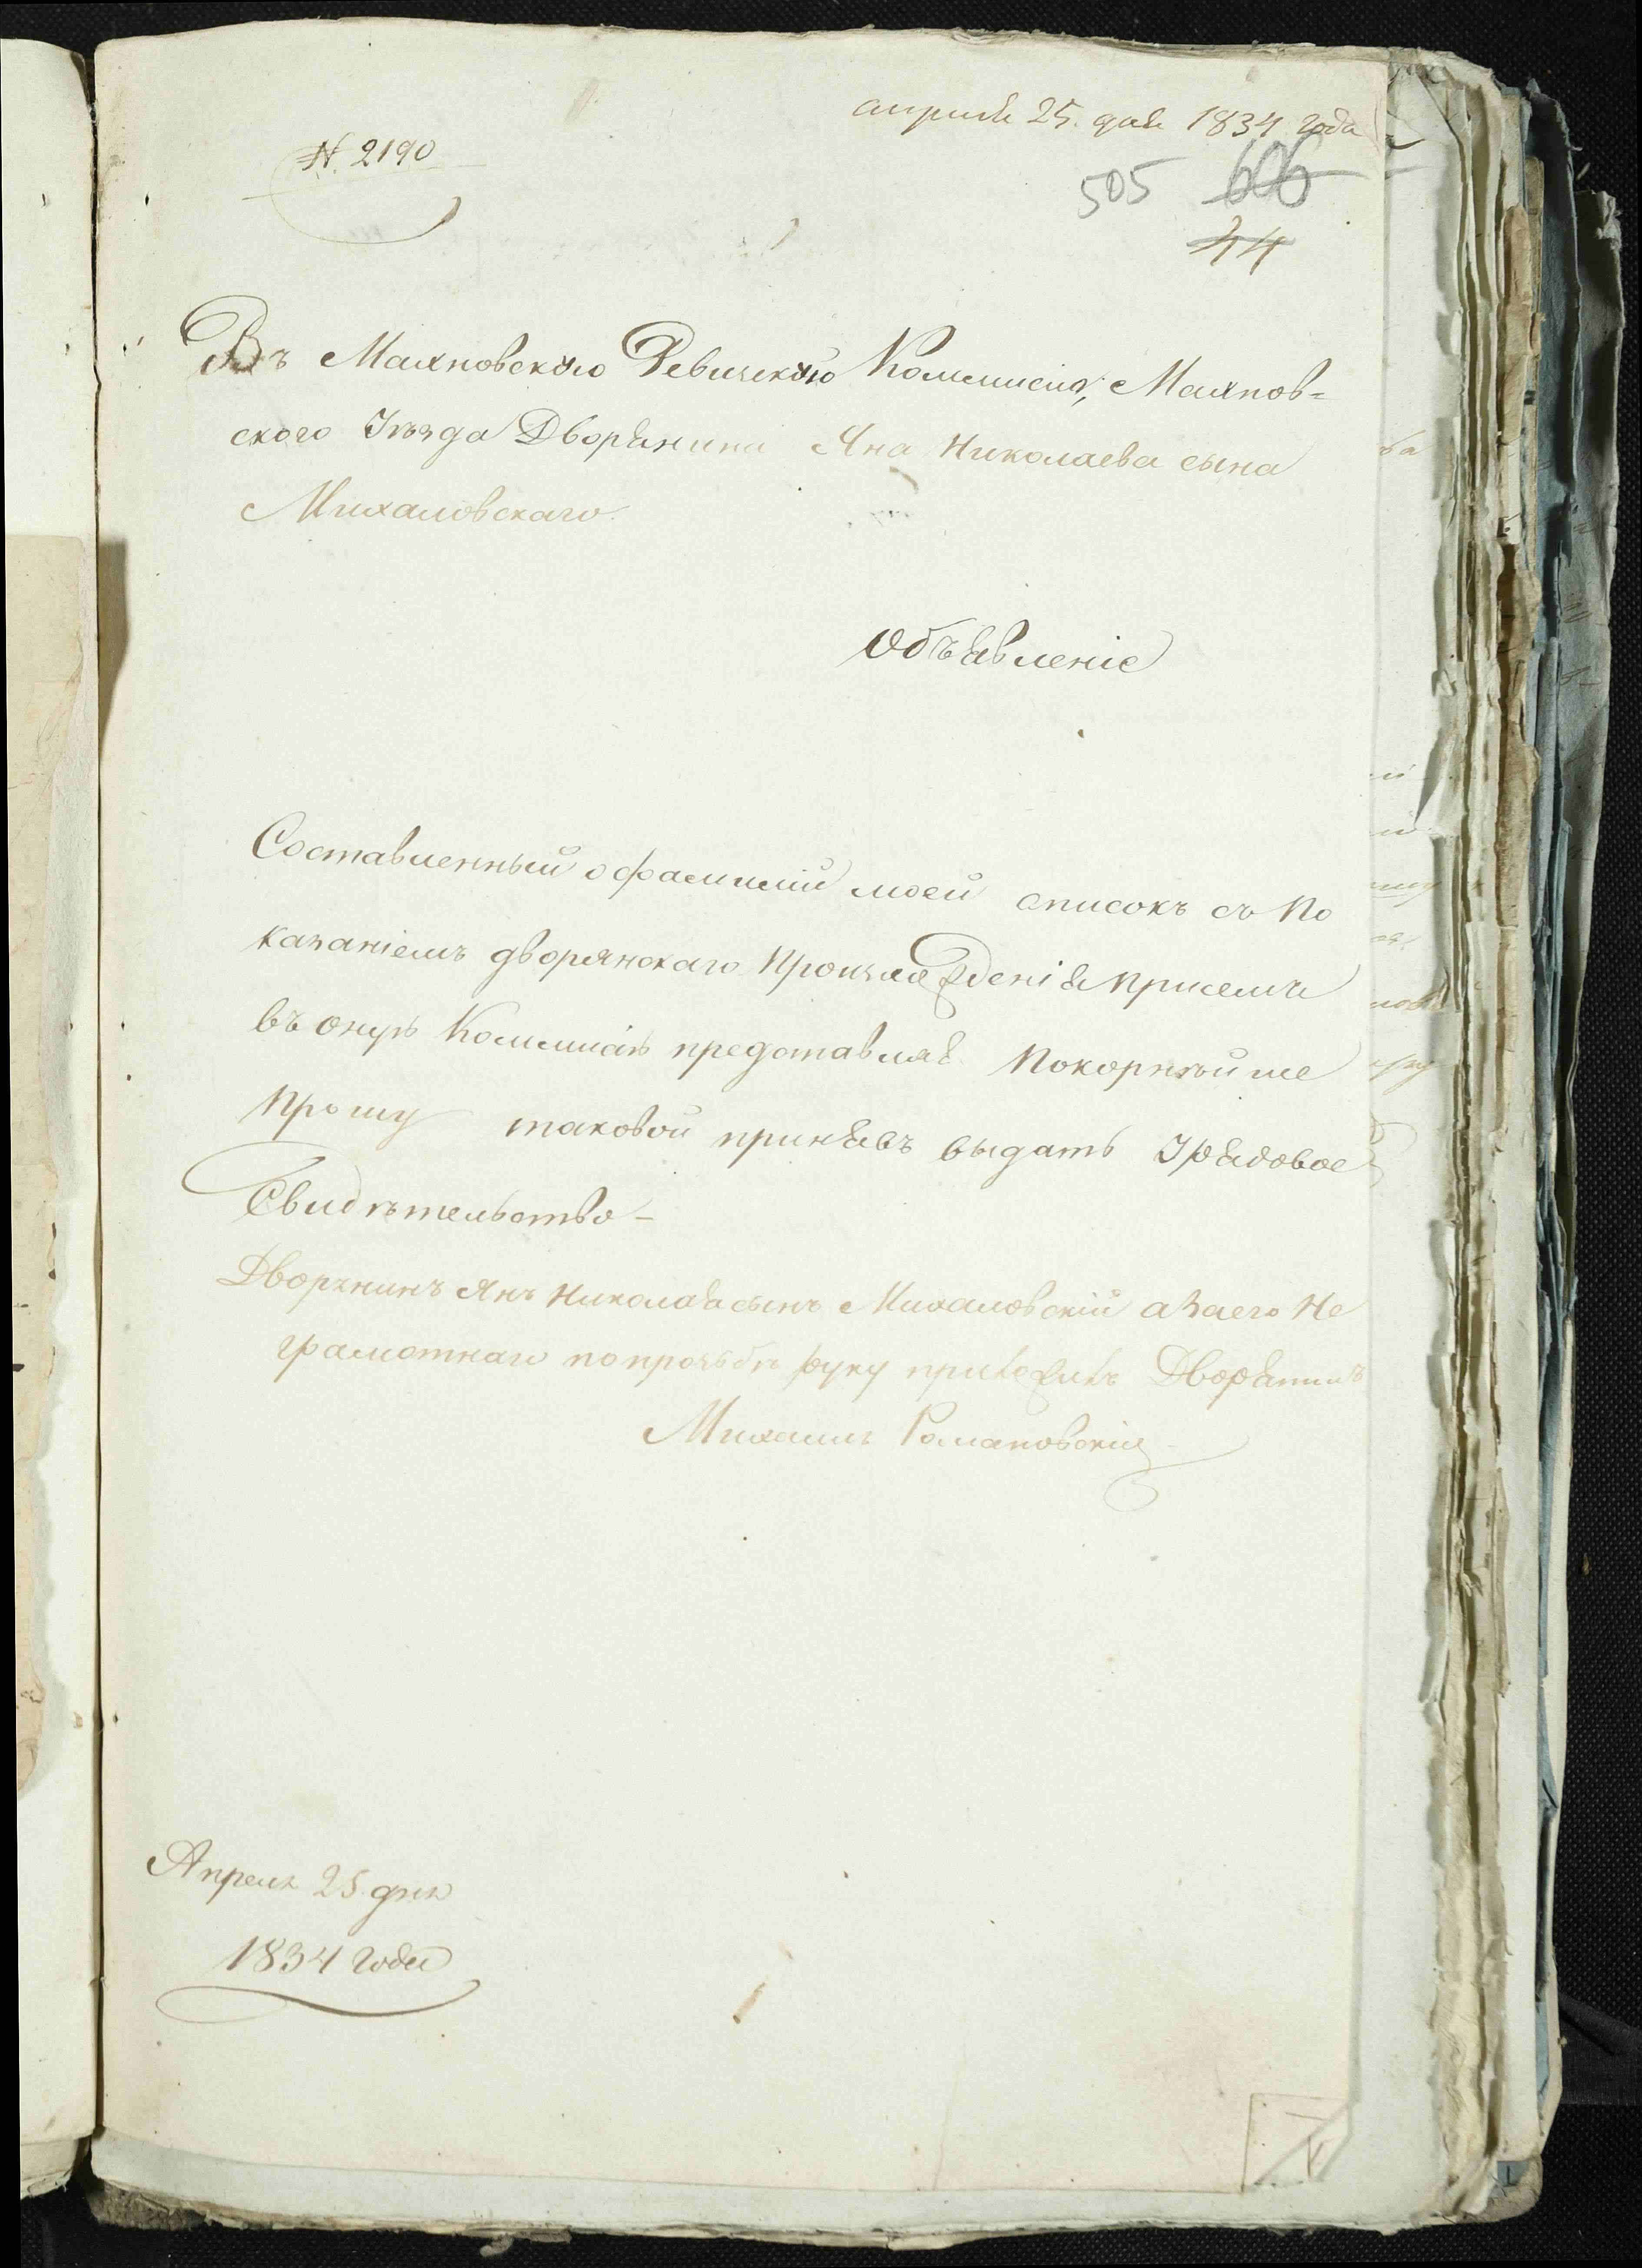 апреля 25. дня 1834 года
№ 2190
505 606
44
Въ Махновскую Ревизскую Коммисію, Махнов=
ского Уѣзда Дворянина Яна Николаева сына
Михаловскаго.
Объявленіе
Составленный о фамиліи моей списокъ съ По
казаніемъ дворянскаго Происхожденія присемъ
въ онуѣ Коммисіѣ представляя Покорнѣйше
Прошу таковой принявъ выдать Урядовое
Свидѣтельство –
Дворянинъ Янъ Николаевъ сынъ Михаловскій а За его Не
грамотнаго по прозьбѣ руку приложилъ Дворянинъ
Михаилъ Романовскій
Апреля 25 дня
1834 года